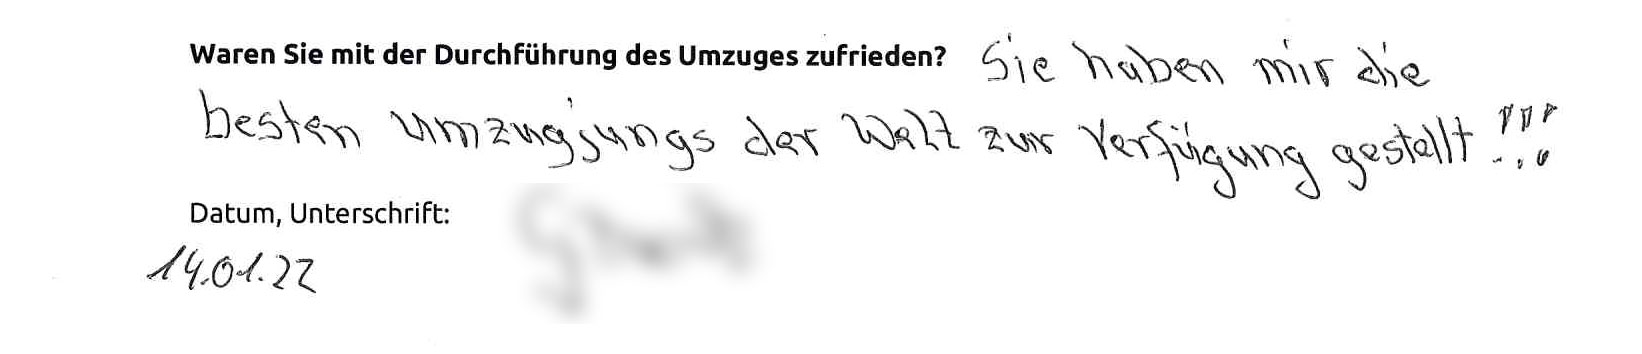 Waren Sie mit der Durchführung des Umzuges zufrieden? Sie haben mir die
besten Umzugsjungs der Welt zur Verfügung gestellt!!!
Datum, Unterschrift:
14.01.22